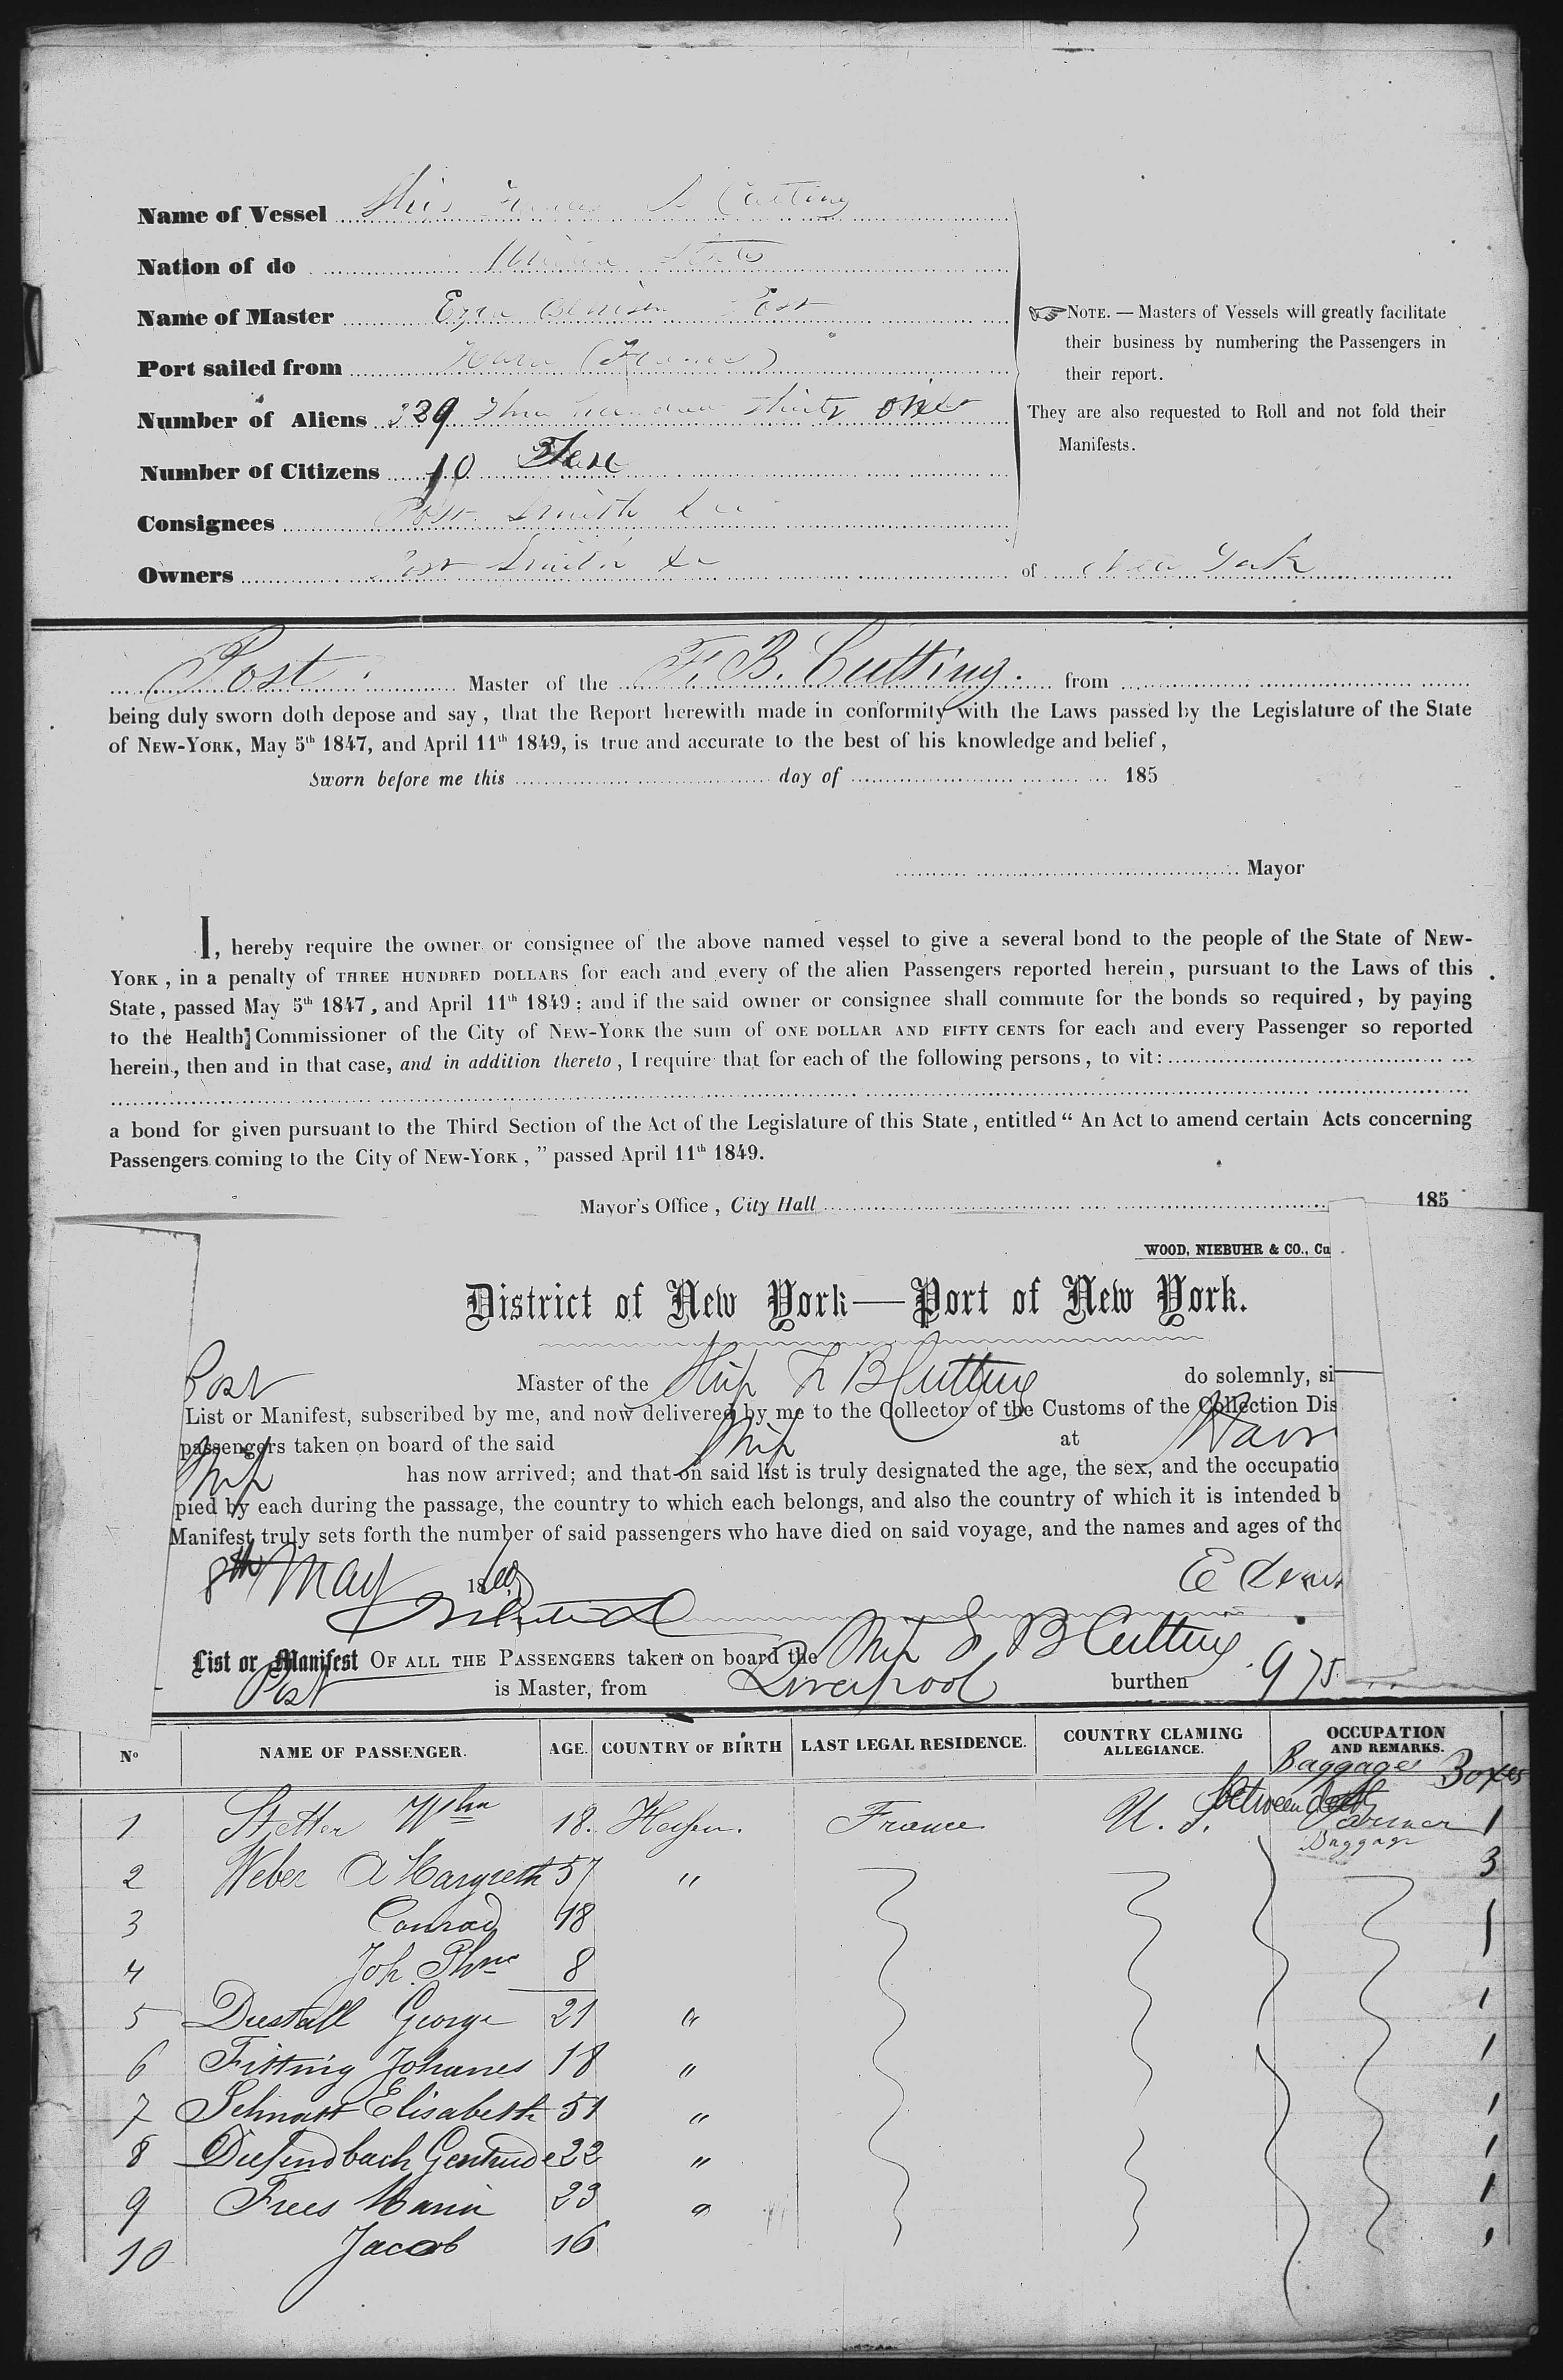 Name of Vessel Ship Francis B Cutting
Nation of do United States
Name of Master Ezra Denison Post
Port sailed from Havre (France)
Number of Aliens 329 Three hundred thirty
Number of Citizens 10 Ten
Consignees Post Smith & Co
Owners Post Smith & Co of New York
NOTE. — Masters of Vessels will greatly facilitate
their business by numbering the Passengers in
their report.
They are also requested to Roll and not fold their
Manifests.
Post Master of the F. B. Cutting. from
being duly sworn doth depose and say, that the Report herewith made in conformity with the Laws passed by the Legislature of the State
of NEW-YORK, May 5th 1847, and April 11th 1849, is true and accurate to the best of his knowledge and belief,
Sworn before me this day of 185
Mayor
I, hereby require the owner or consignee of the above named vessel to give a several bond to the people of the State of NEW-
YORK, in a penalty of THREE HUNDRED DOLLARS for each and every of the alien Passengers reported herein, pursuant to the Laws of this
State, passed May 5th 1847, and April 11th 1849: and if the said owner or consignee shall commute for the bonds so required, by paying
to the Health Commissioner of the City of NEW-YORK the sum of ONE DOLLAR AND FIFTY CENTS for each and every Passenger so reported
herein, then and in that case, and in addition thereto, I require that for each of the following persons, to vit:
a bond for given pursuant to the Third Section of the Act of the Legislature of this State, entitled “ An Act to amend certain Acts concerning
Passengers coming to the City of NEW-YORK, ” passed April 11th 1849.
Mayor's Office, City Hall 185
WOOD, NIEBUHR & CO., Cu
District of New York—Port of New York.
Post Master of the Ship F B Cutting do solemnly, si
List or Manifest, subscribed by me, and now delivered by me to the Collector of the Customs of the Collection Dis
passengers taken on board of the said Ship at Havr
Ship has now arrived; and that on said list is truly designated the age, the sex, and the occupatio
pied by each during the passage, the country to which each belongs, and also the country of which it is intended b
Manifest truly sets forth the number of said passengers who have died on said voyage, and the names and ages of tho
8th May 18
List or Manifest OF ALL THE PASSENGERS taken on board the Ship F B Cutting
Post is Master, from Liverpool burthen 975
No NAME OF PASSENGER. AGE. COUNTRY OF BIRTH LAST LEGAL RESIDENCE. COUNTRY CLAMING ALLEGIANCE. OCCUPATION AND REMARKS.
Baggages Boxes
between deck
1 Stetter Whm 18. Hessen. France U. S. Farmer 1
Baggage
2 Weber A Margreth 57 " 3
3 Conrad 18 1
4 Joh. 8
5 Diestall George 21 " 1
6 Fitting Johanes 18 " 1
7 Schnatt Elisabeth 51 " 1
8 Diefendbach Gertrude 22 " 1
9 Frees Maria 23 " 1
10 Jacob 16 1